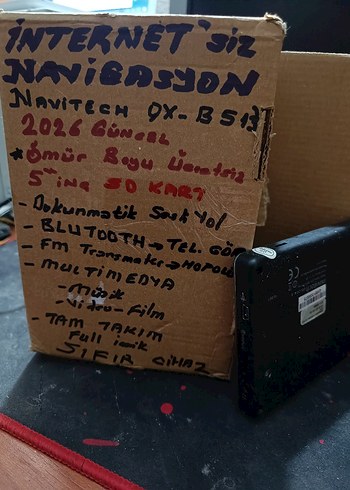 İNTERNET'siz
NAVİGASYON
NAVITECH DX-B513
2026 GÜNCEL
* Ömür Boyu Ücretsiz
5" inç SD KART
- Dokunmatik Sesli Yol
- BLUTOOTH → TEL. GÖR
- FM Transmeter → HOPORL
- MULTİMEDYA
- Müzik
- Video - Film
- TAM TAKIM
Full
SIFIR CİHAZ
CE